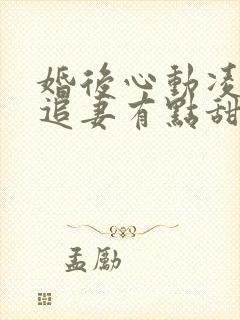 婚後心動凌
追妻有點甜
孟勵